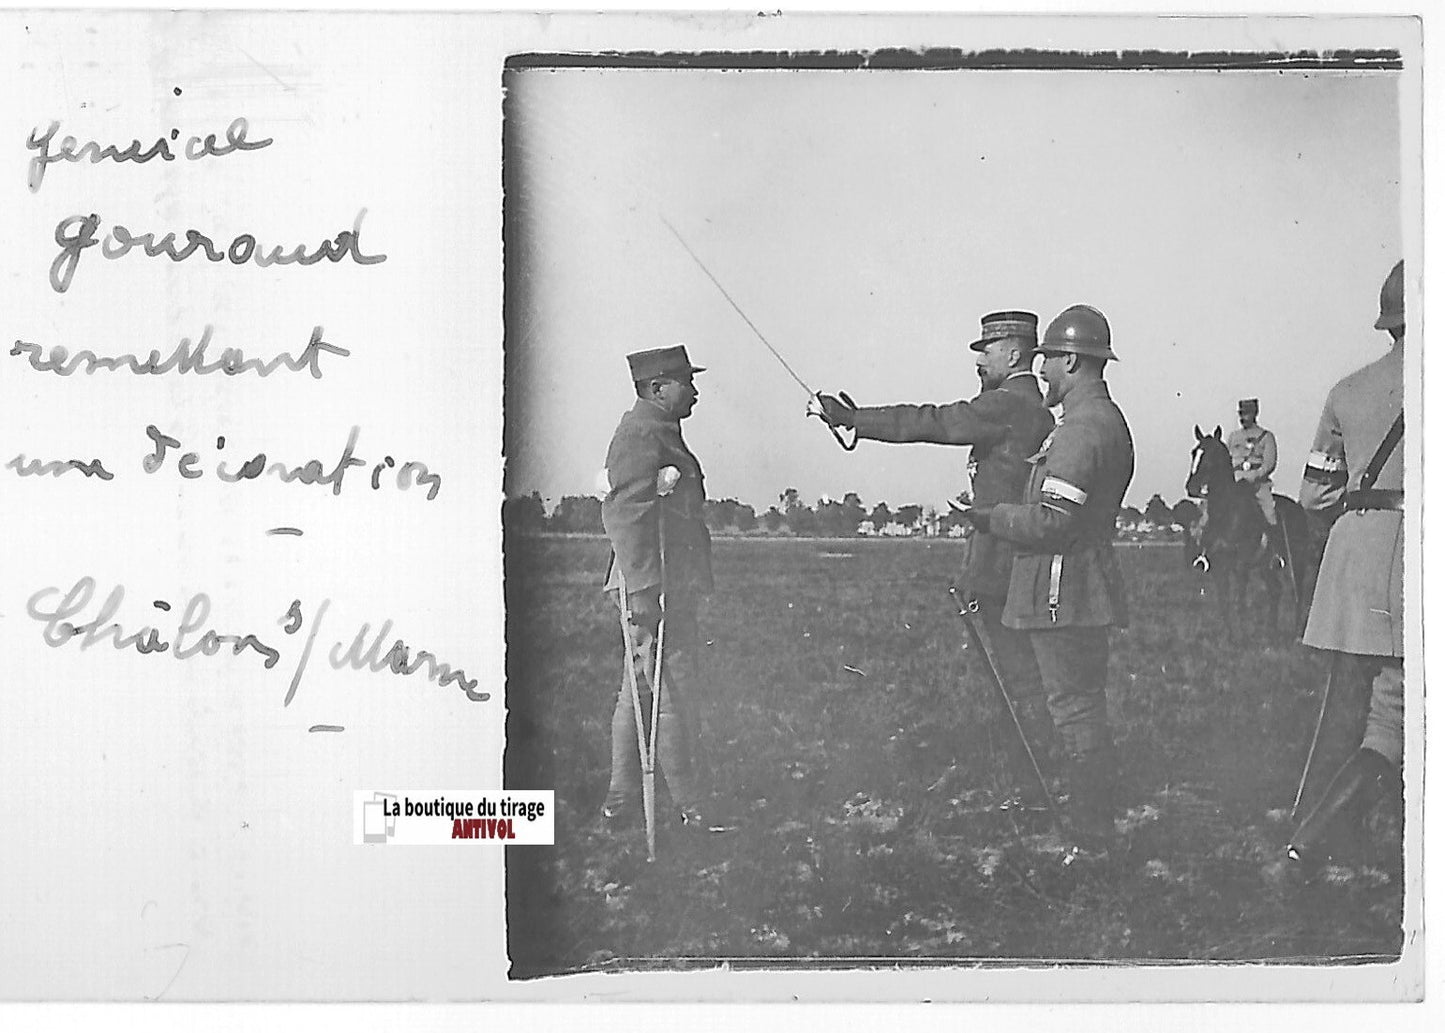 général
Gouraud
remettant
une décoration
Châlons s/Marne
La boutique du tirage
ANTIVOL